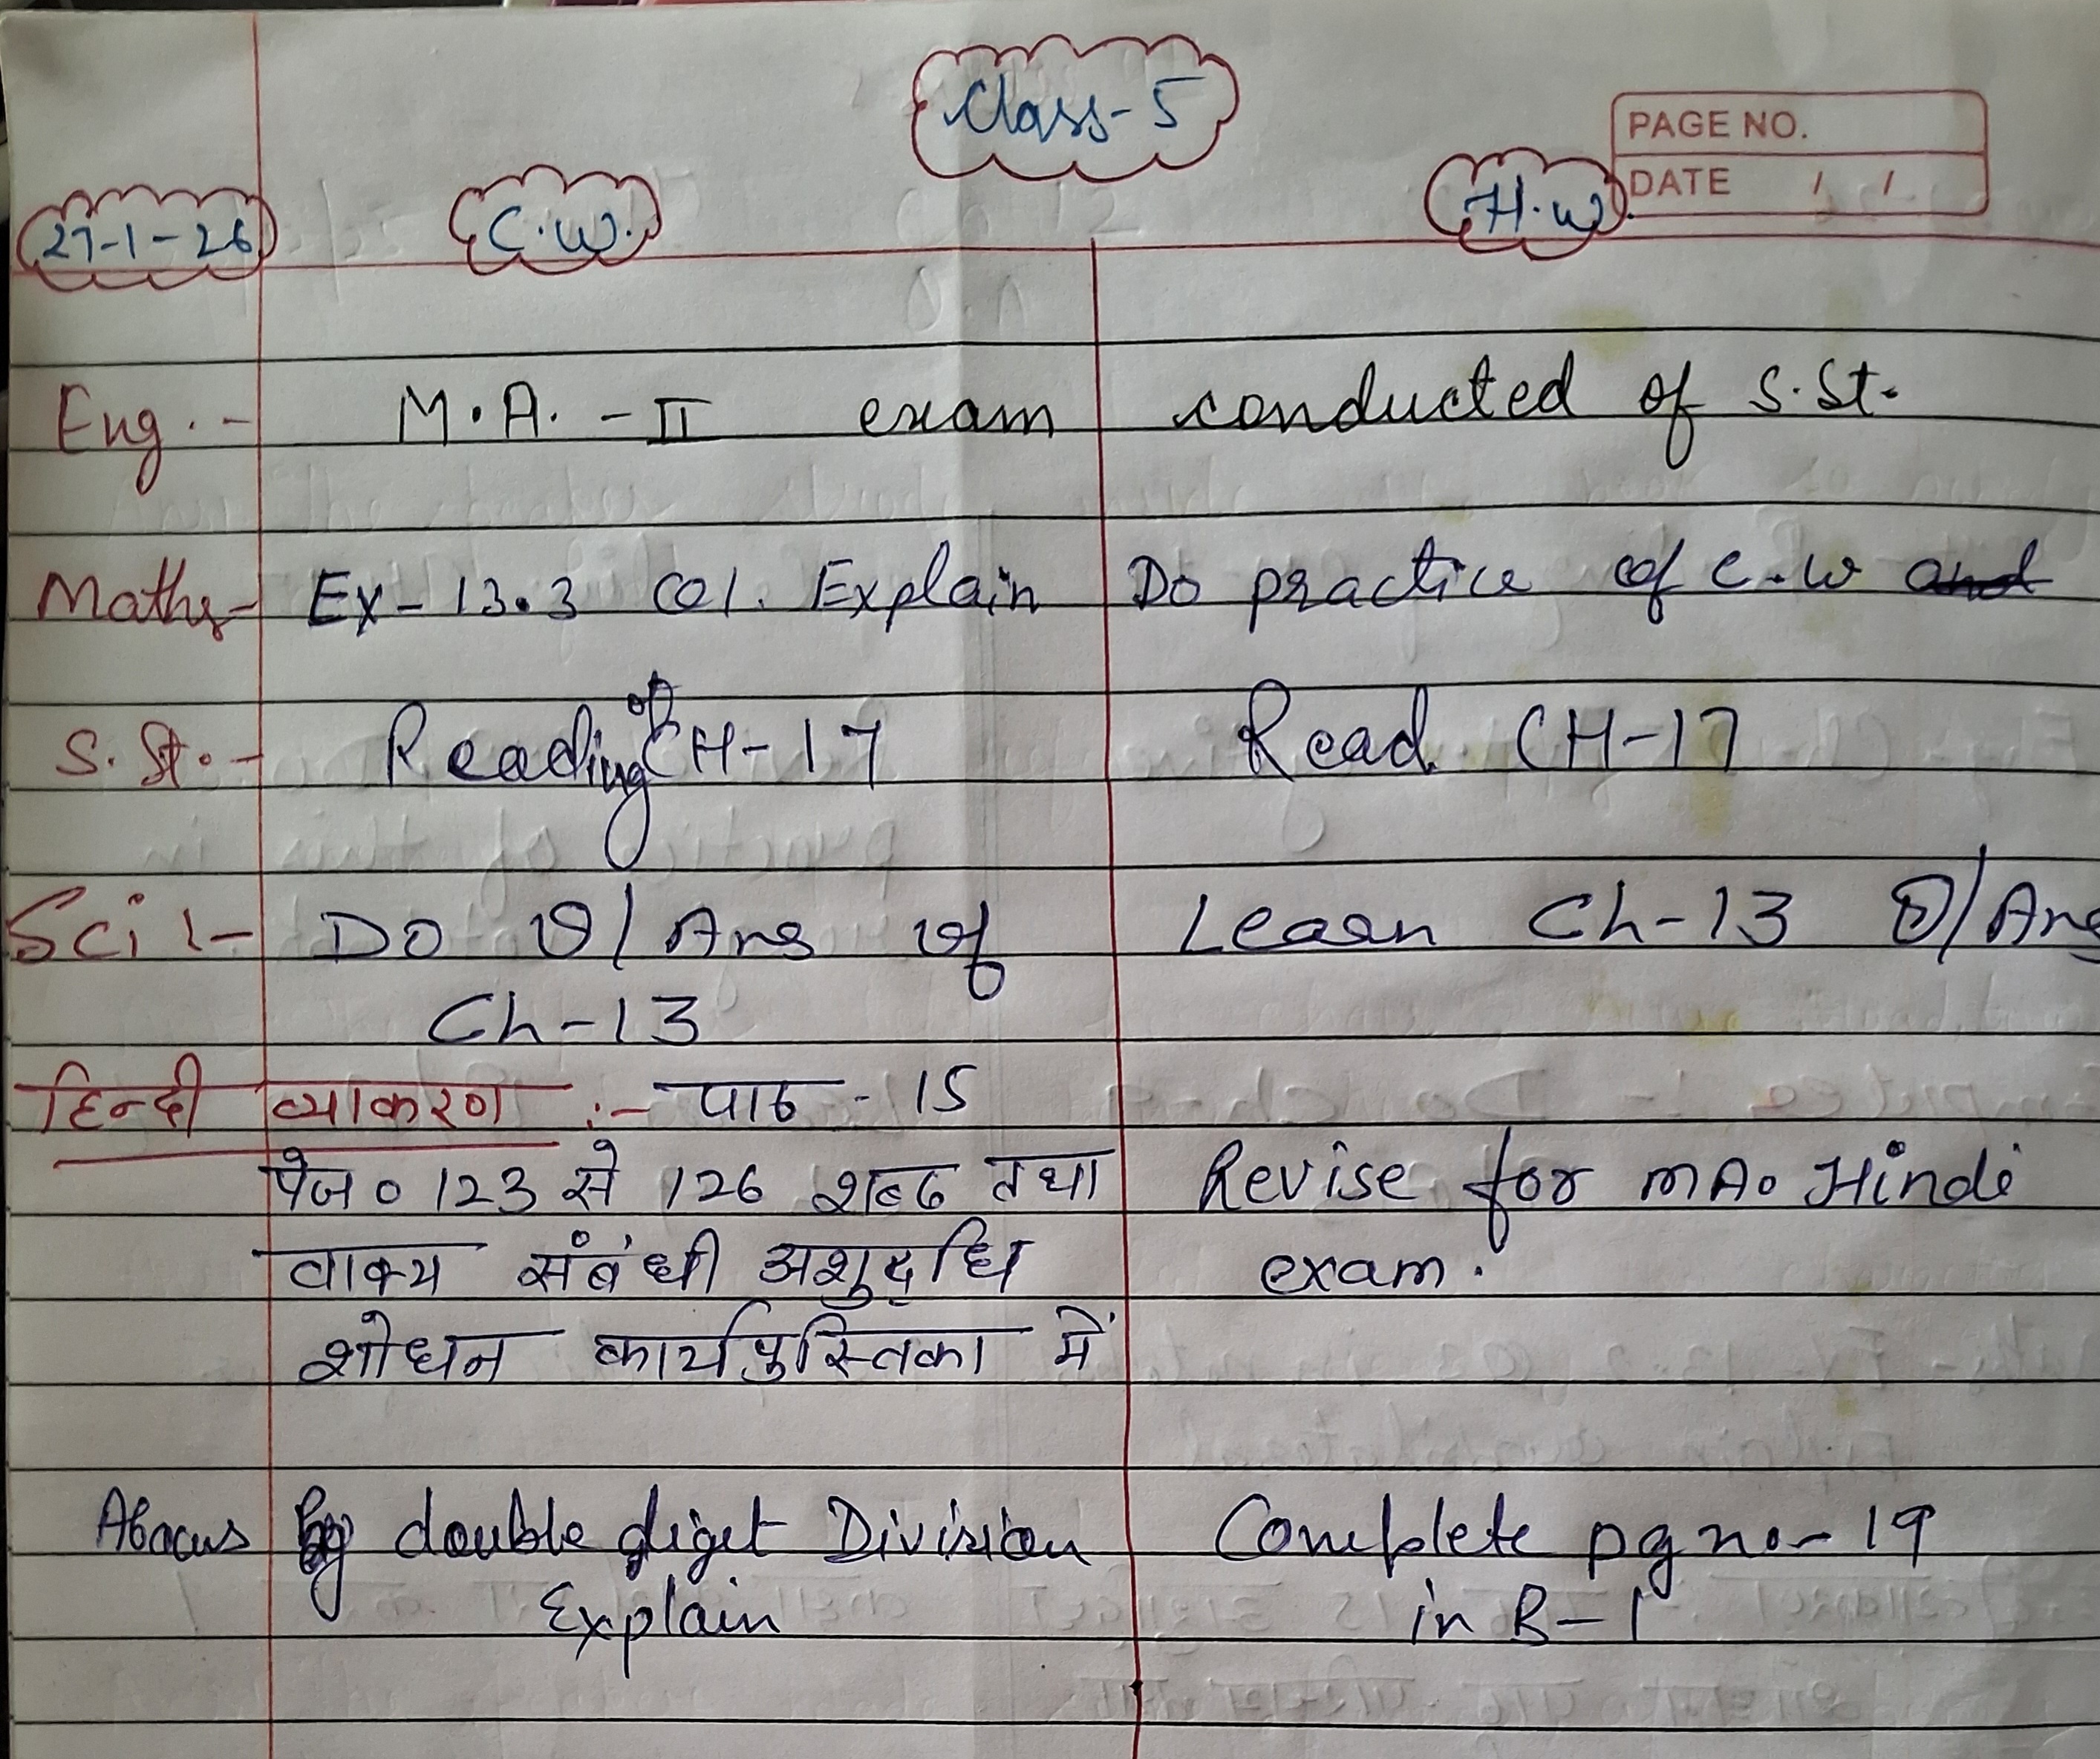 Class-5
PAGE NO.
DATE / /
27-1-26 C.W. H.W.
Eng.- M.A.-II exam conducted of S.St.
Maths- Ex-13.3 Q1. Explain Do practice of C.W and
S.St.- Reading of CH-17 Read CH-17
Sci :- Do Q/Ans of Learn Ch-13 Q/Ans
Ch-13
हिन्दी व्याकरण :- पाठ - 15
पेज० 123 से 126 शब्द तथा Revise for MA. Hindi
वाक्य संबंधी अशुद्धि exam.
शोधन कार्यपुस्तिका में
Abacus By double digit Division Complete pg no- 19
Explain in B-1